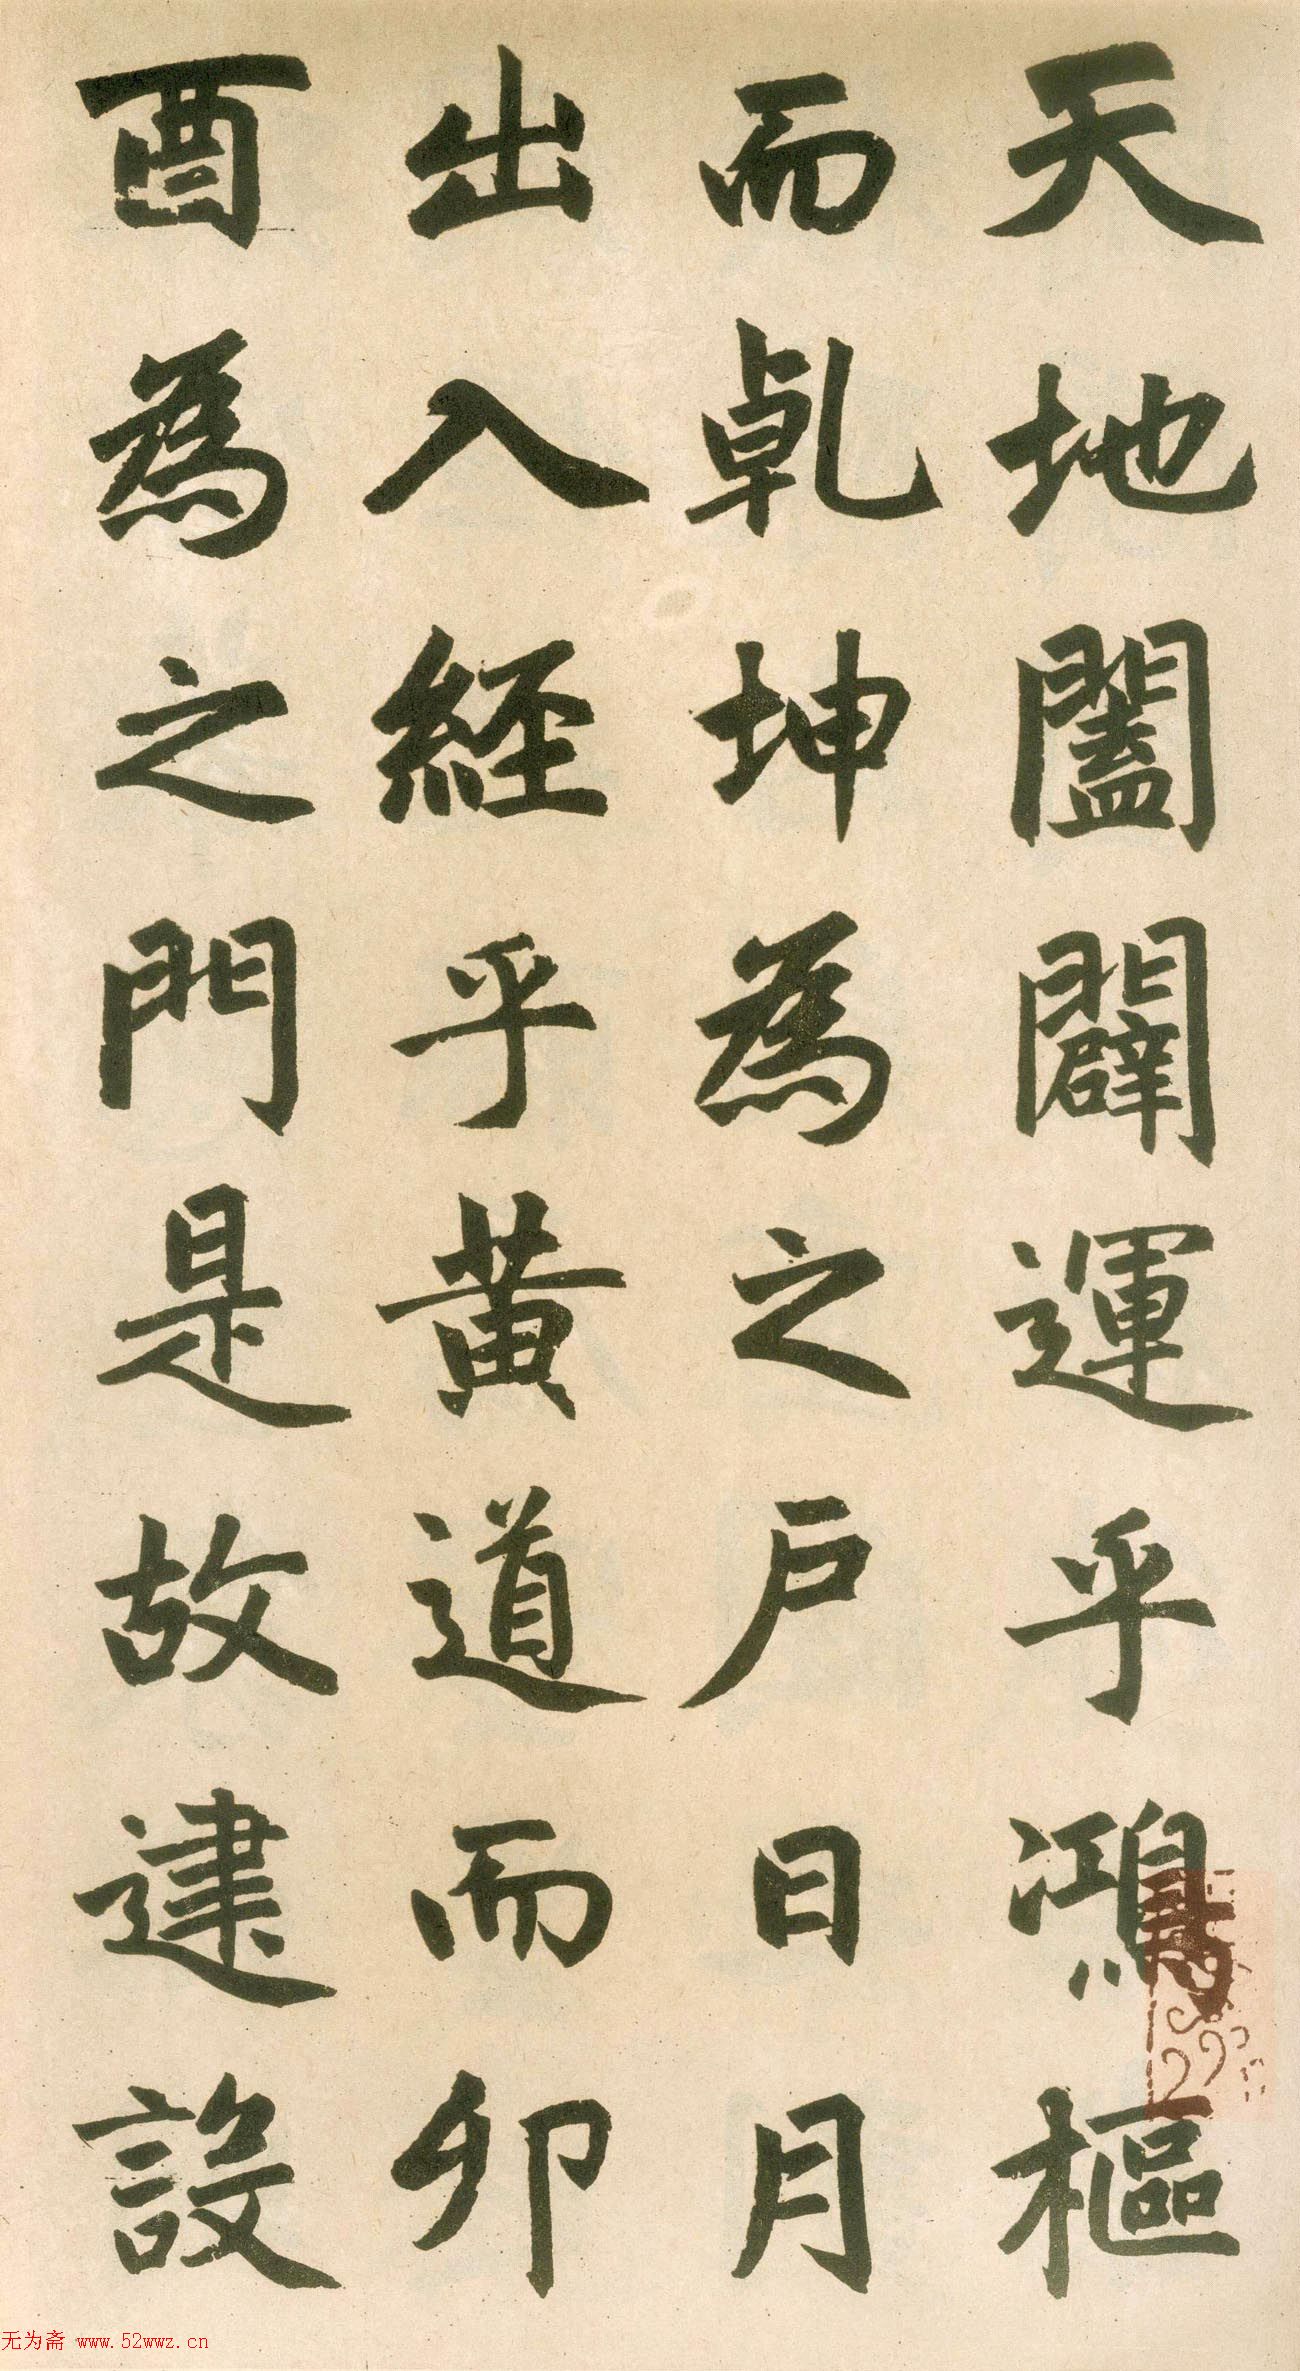 天地闔闢運乎鴻樞
而乹坤為之戶日月
出入經乎黃道而卯
酉為之門是故建設
无为斋 www.52wwz.cn